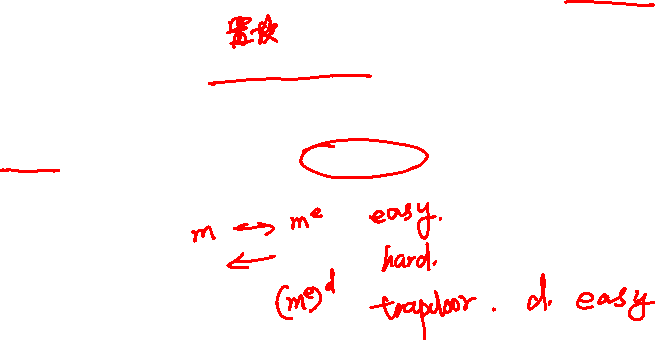 置换
m ↔ m^e easy.
← hard.
(m^e)^d trapdoor. d. easy